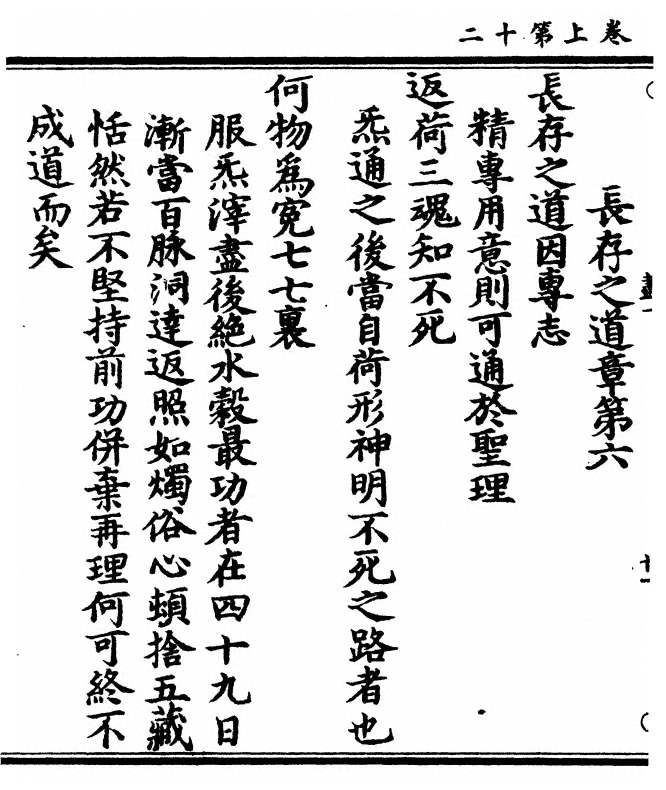 卷上第十二
長存之道章第六
長存之道因專志
精專用意則可通於聖理
返荷三魂知不死
炁通之後當自荷形神明不死之路者也
何物爲寃七七裏
服炁滓盡後絶水穀最功者在四十九日
漸當百脉洞達返照如燭俗心頓捨五藏
恬然若不堅持前功併棄再理何可終不
成道而矣